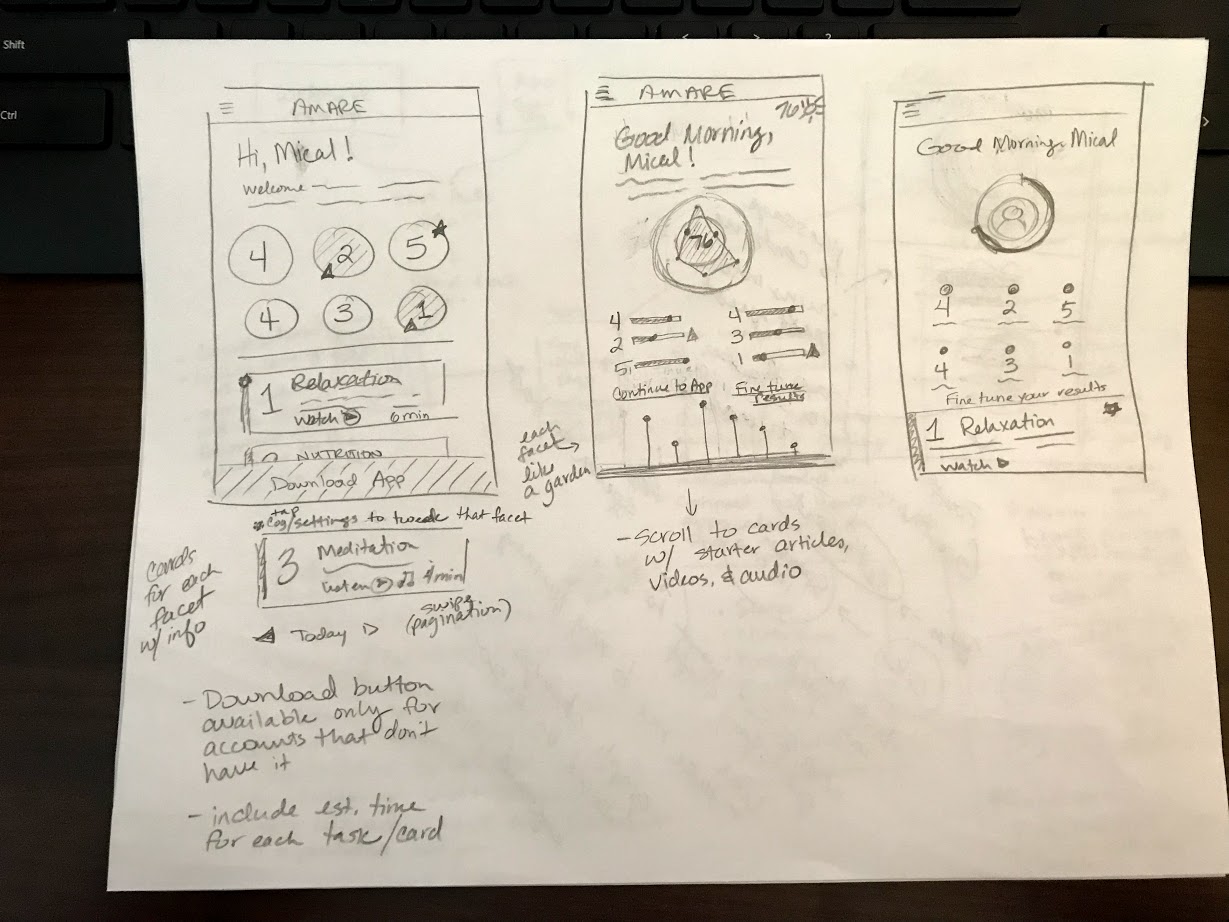 Shift
Ctrl
AMARE
Hi, Mical!
Welcome
4 2 5
4 3 1
1 Relaxation
Watch 6 min
2 NUTRITION
Download App
tap
cog/settings to tweak that facet
3 Meditation
Listen 4 min
cards
for each
facet
w/ info
Today
swipe
(pagination)
- Download button
available only for
accounts that don't
have it
- include est. time
for each task/card
AMARE
Good Morning,
Mical!
76
4 4
2 3
5 1
Continue to App
Fine tune
results
each
facet
like
a garden
- Scroll to cards
w/ starter articles,
videos, & audio
Good Morning, Mical
4 2 5
4 3 1
Fine tune your results
1 Relaxation
Watch